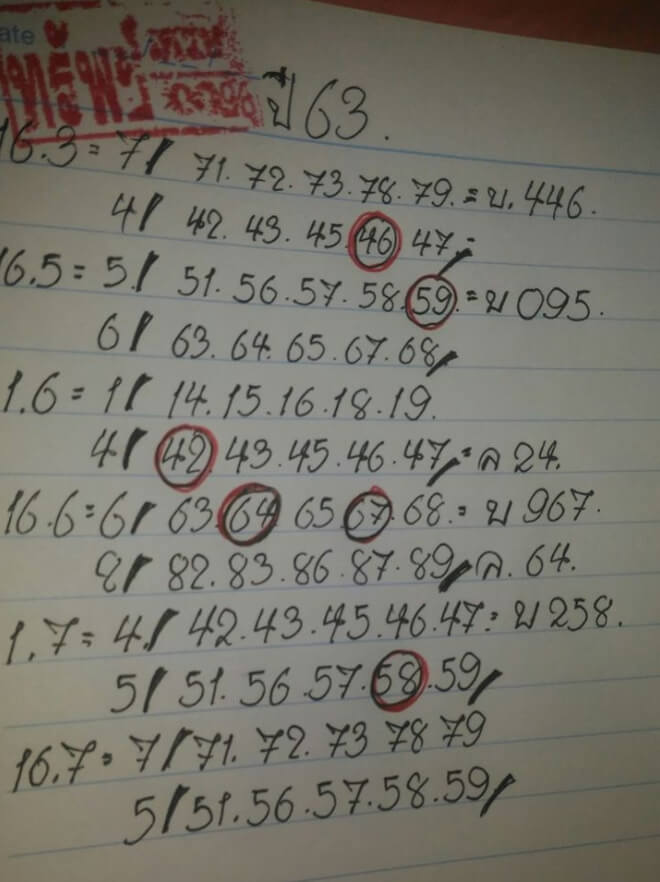 ate
ปี 63.
16.3 = 7/ 71.72.73.78.79. = บ.446.
4/ 42.43.45.46 47,=
16.5 = 5/ 51.56.57.58.59. = บ 095.
6/ 63.64.65.67.68,
1.6 = 1/ 14.15.16.18.19.
4/ 42.43.45.46.47,= ล 24.
16.6 = 6/ 63.64 65 67.68. = บ 967.
8/ 82.83.86.87.89, ล. 64.
1.7 = 4./ 42.43.45.46.47 = บ 258.
5/ 51.56.57.58.59,
16.7 = 7/ 71.72.73 78 79
5/ 51.56.57.58.59,